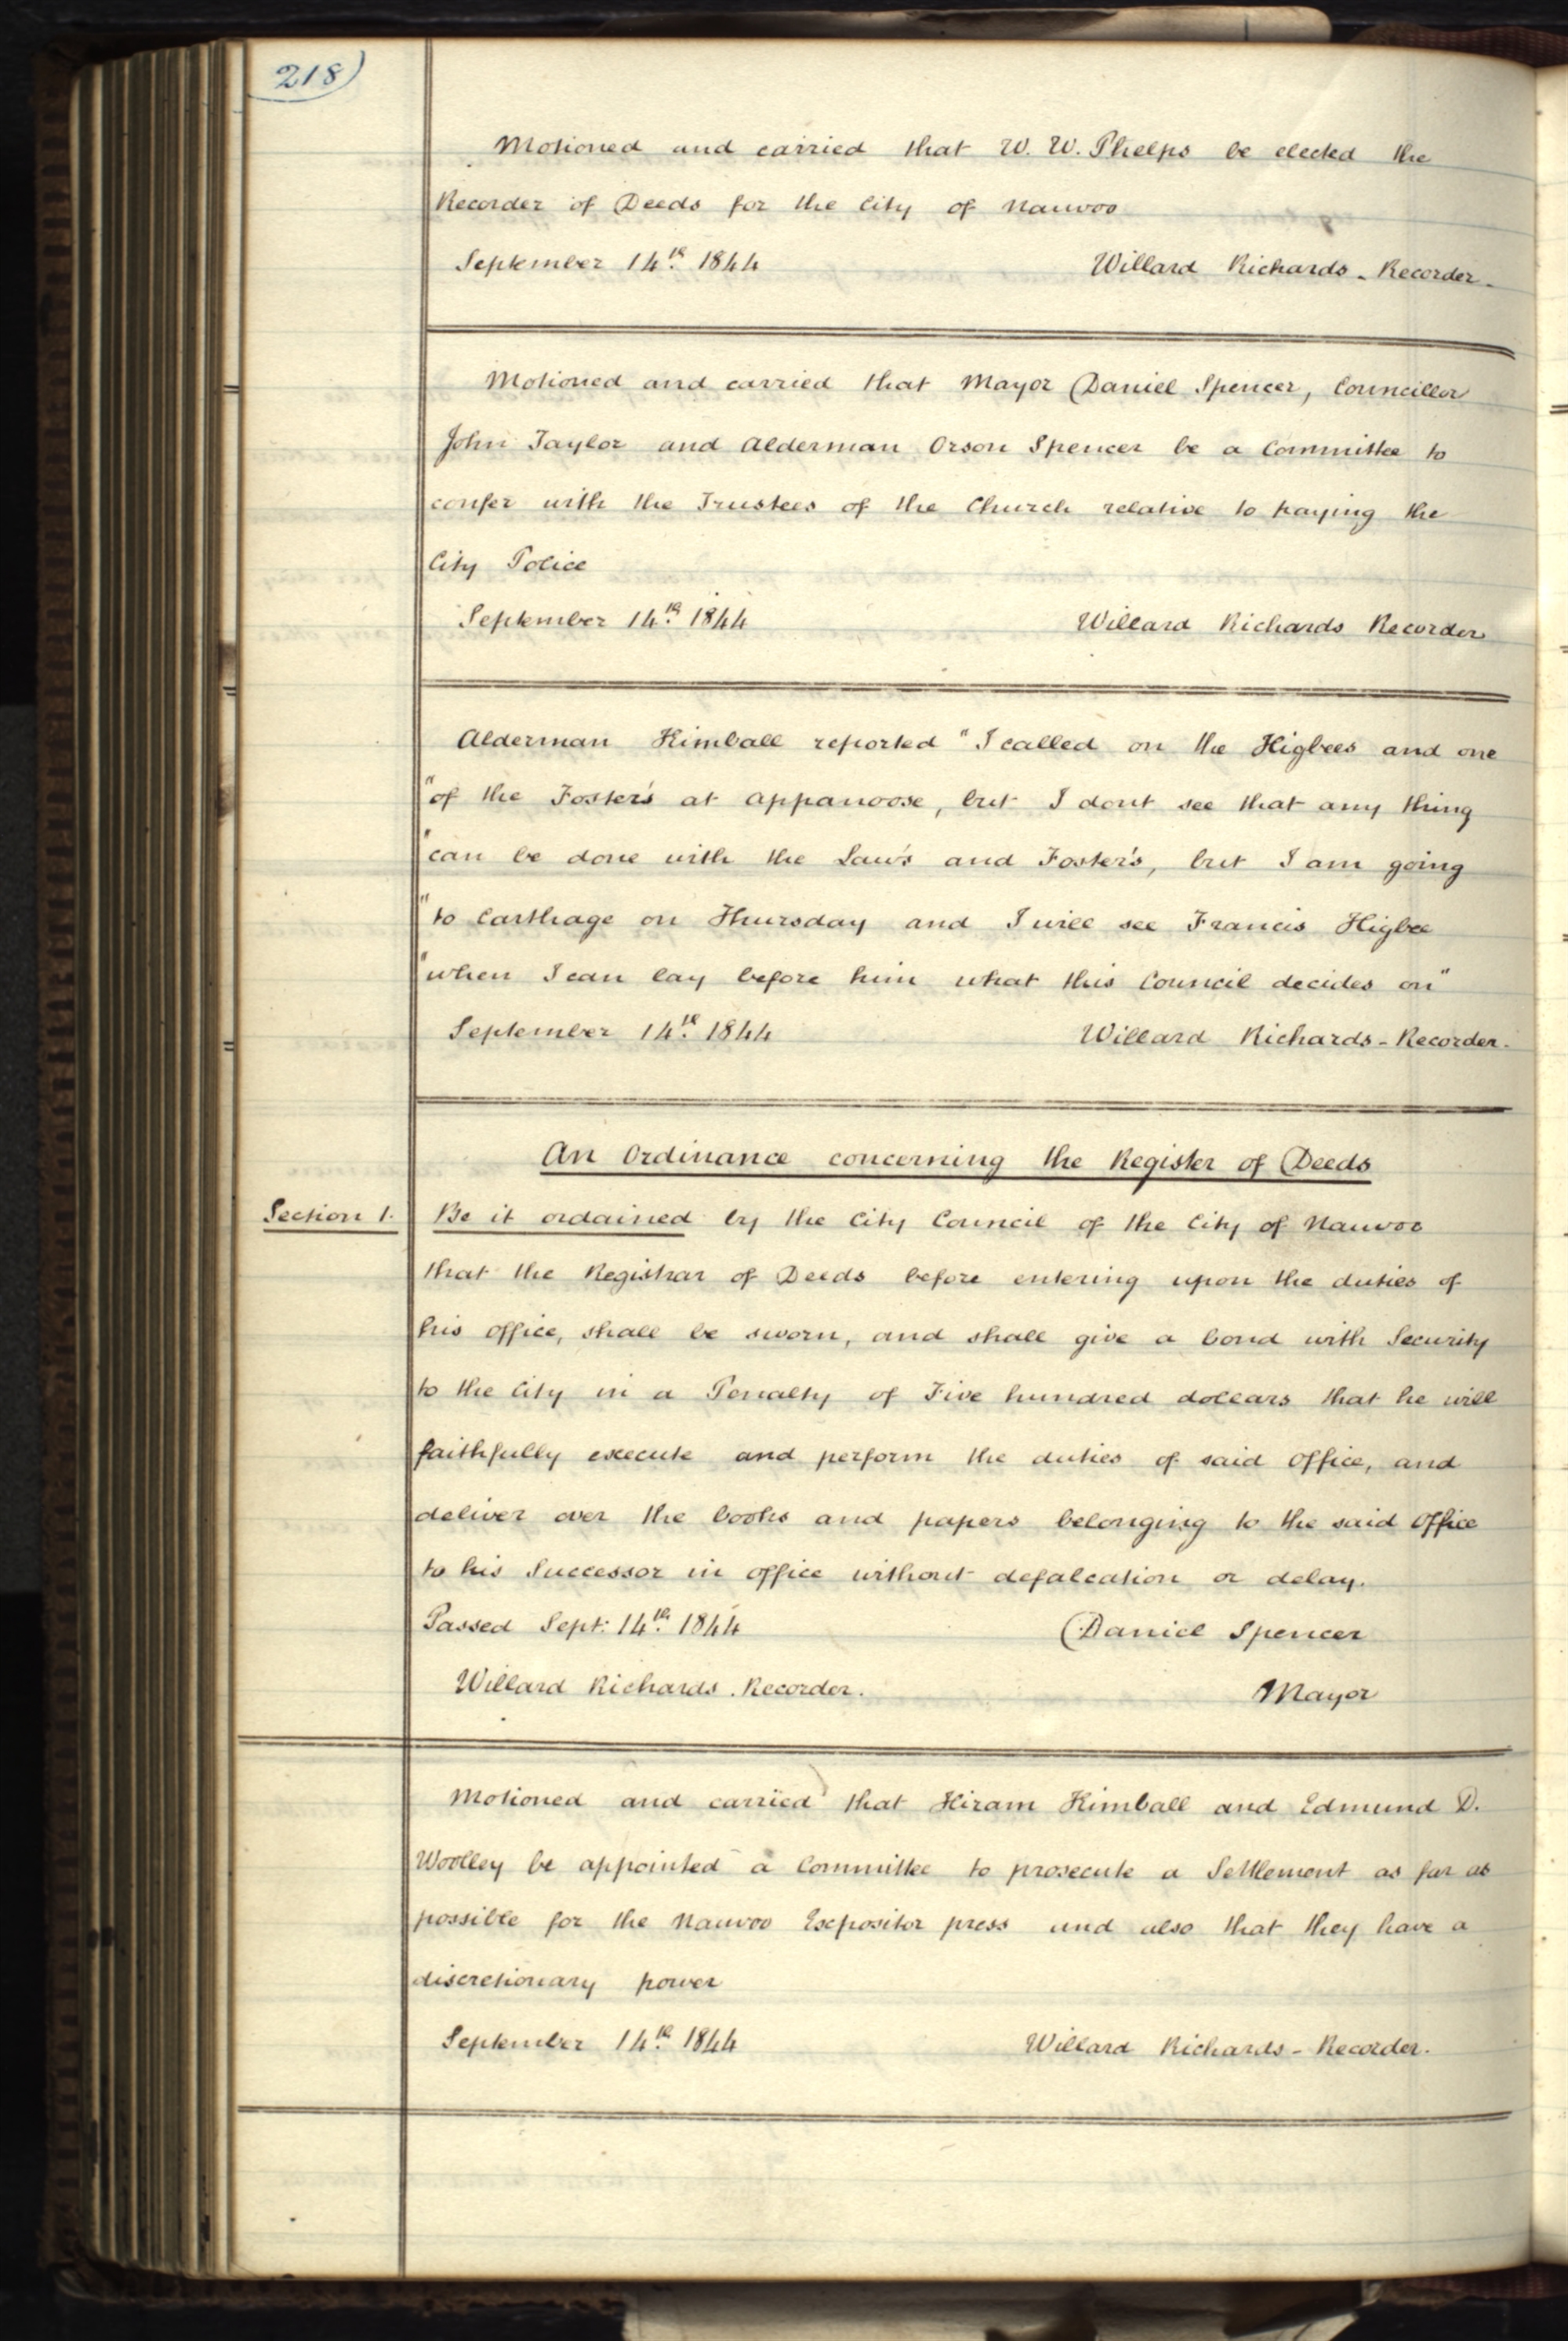 218)
Motioned and carried that W. W. Phelps be elected the
Recorder of Deeds for the City of Nauvoo
September 14th. 1844 Willard Richards - Recorder.
Motioned and carried that Mayor Daniel Spencer, Councillor
John Taylor and Alderman Orson Spencer be a Committee to
confer with the Trustees of the Church relative to paying the
City Police
September 14th. 1844 Willard Richards Recorder
Alderman Kimball reported "I called on the Higbees and one
"of the Foster's at Appanoose, but I dont see that any thing
"can be done with the Law's and Foster's, but I am going
"to Carthage on Thursday and I will see Francis Higbee
"when I can lay before him what this Council decides on"
September 14th. 1844 Willard Richards - Recorder.
An Ordinance concerning the Register of Deeds
Section 1. Be it ordained by the City Council of the City of Nauvoo
that the Registrar of Deeds before entering upon the duties of
his office, shall be sworn, and shall give a bond with Security
to the City in a Penalty of Five hundred dollars that he will
faithfully execute and perform the duties of said office, and
deliver over the books and papers belonging to the said Office
to his Successor in office without defalcation or delay.
Passed Sept: 14th. 1844 Daniel Spencer
Willard Richards. Recorder. Mayor
Motioned and carried that Hiram Kimball and Edmund D.
Woolley be appointed a Committee to prosecute a Settlement as far as
possible for the Nauvoo Expositor press and also that they have a
discretionary power
September 14th. 1844 Willard Richards - Recorder.